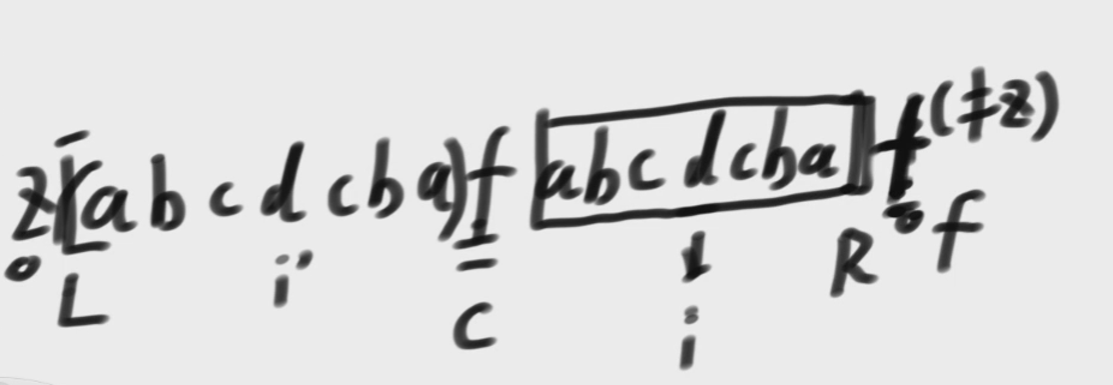 z(abcdcba)f abcdcba f(≠z)
L i' C i R f